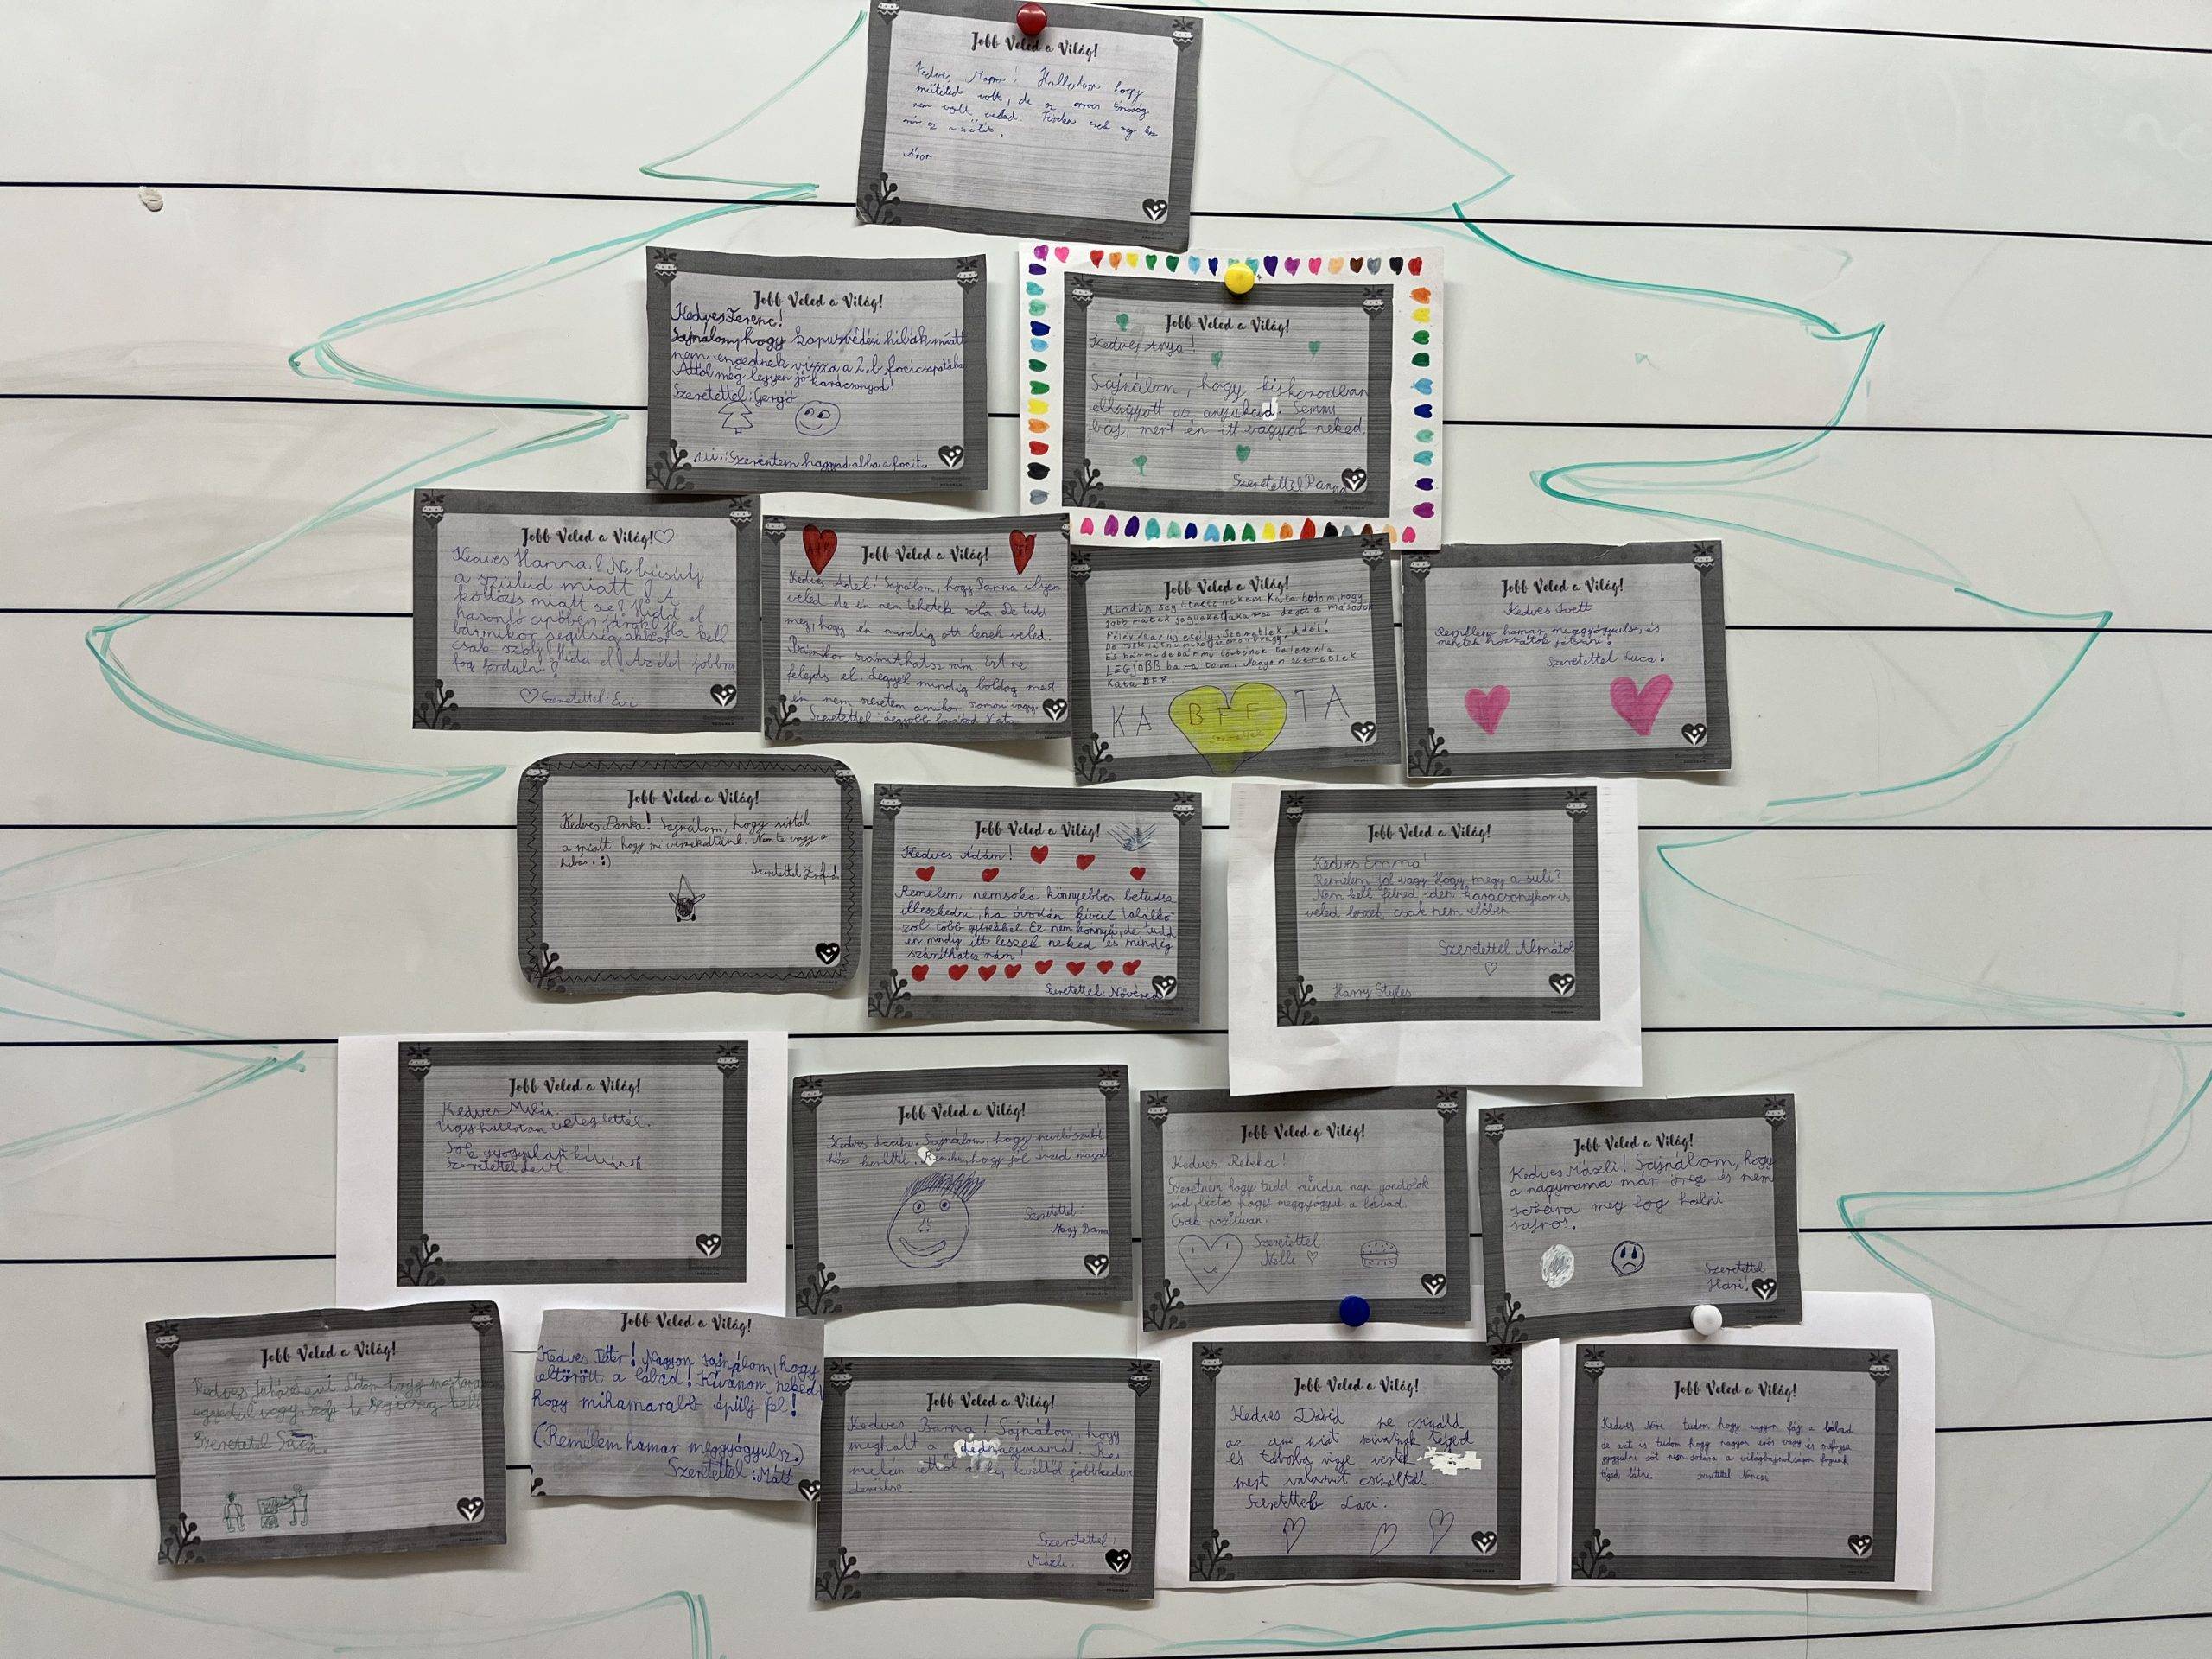 Jobb Veled a Világ!
Kedves Hallottam hogy
műtéted volt, de az orvos
nem volt veled.
az a műtét.
Áron
Jobb Veled a Világ!
Kedves Ferenc!
Sajnálom, hogy kapusvédési hibák miatt
nem engednek vissza a 2.b focicsapatába
Attól még legyen jó karácsonyod!
Szeretettel: Gergő
ui.: Szerintem haggyad abba a focit.
Jobb Veled a Világ!
Kedves Anya!
Sajnálom, hogy kiskorodban
elhagyott az anyukád. Semmi
baj, mert én itt vagyok neked.
Szeretettel Panna
Jobb Veled a Világ!
Kedves Hanna! Ne búsúlj
a szüleid miatt,
költözés miatt se! Hidd el
hasonló cipőben járok! Ha kell
bármikor segítség, akkor
csak szólj! Hidd el! Az élet jobbra
fog fordulni!
Szeretettel: Evi
Jobb Veled a Világ!
BFF
Kedves Adél! Sajnálom, hogy Panna ilyen
veled de én nem tehetek róla. De tudd
meg, hogy én mindig ott leszek veled.
Bármikor számíthatsz rám. Ezt ne
felejtsd el. Legyél mindig boldog mert
én nem szeretem amikor szomorú vagy.
Szeretettel: Legjobb barátod Kata
Jobb Veled a Világ!
Mindig segítesz nekem Kata tudom, hogy
jobb matek jegyeket akarsz de
Félév és az új esély. Szeretlek Adél!
És bármi de bármi történik te leszel a
LEGJOBB barátom. Nagyon szeretlek
Kata BFF.
KA BFF TA
Szeretlek
Jobb Veled a Világ!
Kedves Ivett
Remélem hamar meggyógyulsz, és
mehetek hozzátok játszani!
Szeretettel Luca!
Jobb Veled a Világ!
Kedves Panka! Sajnálom, hogy sírtál
a miatt hogy mi veszekedtünk. Nem te vagy a
hibás. :)
Szeretettel Zsófi!
Jobb Veled a Világ!
Kedves Ádám!
Remélem nemsoká könnyebben betudsz
illeszkedni, ha óvodán kívül találko-
zol több gyerekkel. Ez nem könnyű, de tudd
én mindig itt leszek neked és mindig
számíthatsz rám!
Szeretettel: Nővéred
Jobb Veled a Világ!
Kedves Emma!
Remélem jól vagy. Hogy megy a suli?
Nem kell félned idén karácsonykor is
veled leszek, csak nem előben.
Szeretettel Almától
Harry Styles
Jobb Veled a Világ!
Kedves Milán.
Úgy hallottam beteg lettél.
Sok gyógyulást kívánok
Szeretettel Levi
Jobb Veled a Világ!
Kedves Lacika. Sajnálom, hogy nevelőszülő
höz kerültél. Remélem, hogy jól érzed magad
Szeretettel:
Nagy Barna
Jobb Veled a Világ!
Kedves Rebeka!
Szeretném hogy tudd minden nap gondolok
rád, biztos hogy meggyógyul a lábad.
Csak pozitívan.
Szeretettel
Nelli
Jobb Veled a Világ!
Kedves Mázli! Sajnálom, hogy
a nagymama már öreg és nem
sokára meg fog halni
sajnos.
Szeretettel
Hari!
Jobb Veled a Világ!
Kedves Juhász
egyedül vagy
Szeretettel Saca.
Jobb Veled a Világ!
Kedves Péter! Nagyon sajnálom, hogy
eltörött a lábad! Kívánom neked,
hogy mihamarabb épülj fel!
(Remélem hamar meggyógyulsz.)
Szeretettel: Máté
Jobb Veled a Világ!
Kedves Barna! Sajnálom, hogy
meghalt a dédnagymamád. Re-
mélem ettől a kis levéltől jobb kedvre
derülsz.
Szeretettel:
Mázli.
Jobb Veled a Világ!
Kedves Dávid ne csináld
az ami miat szivatnak téged
és távolba
mert valamit csináltál.
Szeretettel Laci.
Jobb Veled a Világ!
Kedves Nóri tudom hogy nagyon fáj a lábad
de azt is tudom hogy nagyon erős vagy és
gyógyulni sőt nem sokára a világbajnokságon fogunk
téged látni. Szeretettel Noncsi